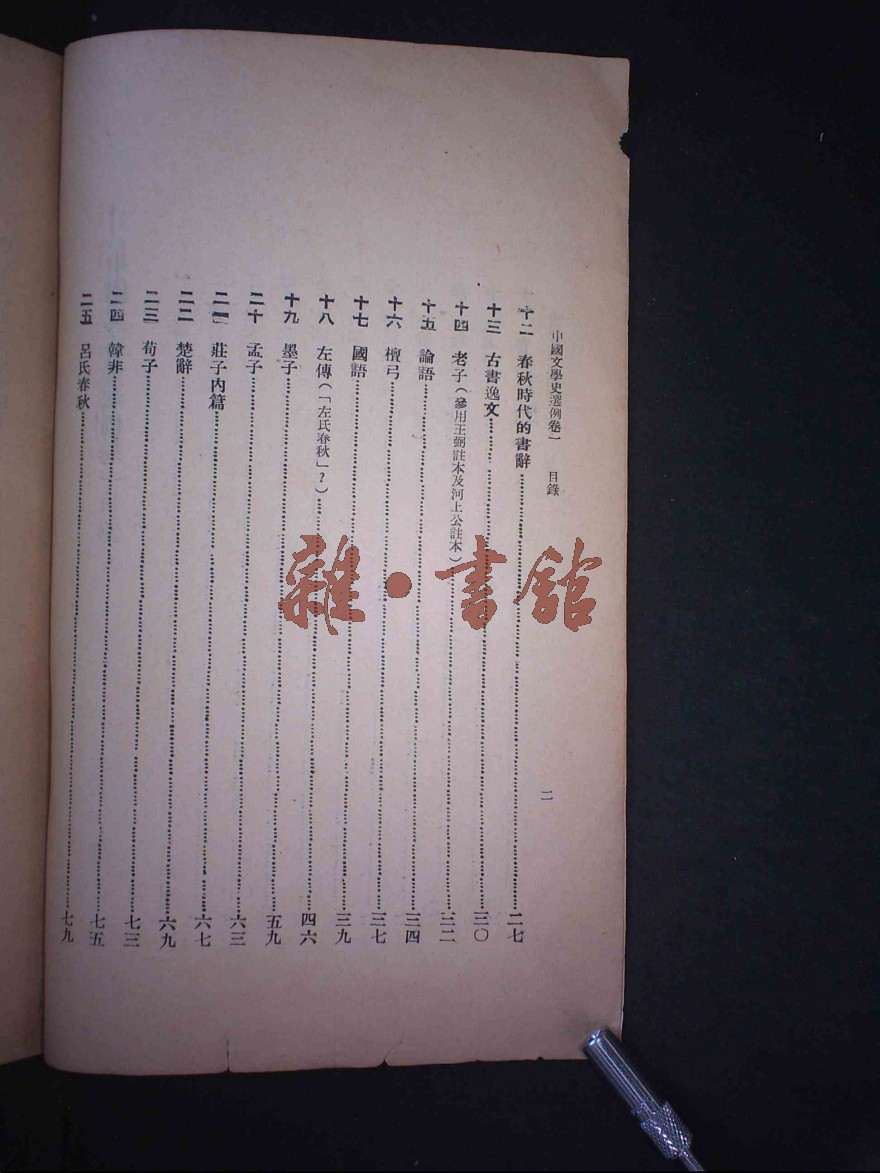 中國文學史選例卷一 目錄 二
十二 春秋時代的書辭 二七
十三 古書逸文 三〇
十四 老子（參用王弼註本及河上公註本） 三二
十五 論語 三四
十六 檀弓 三七
十七 國語 三九
十八 左傳（「左氏春秋」？） 四六
十九 墨子 五九
二十 孟子 六三
二一 莊子內篇 六七
二二 楚辭 六九
二三 荀子 七三
二四 韓非 七五
二五 呂氏春秋 七九
雜·書館